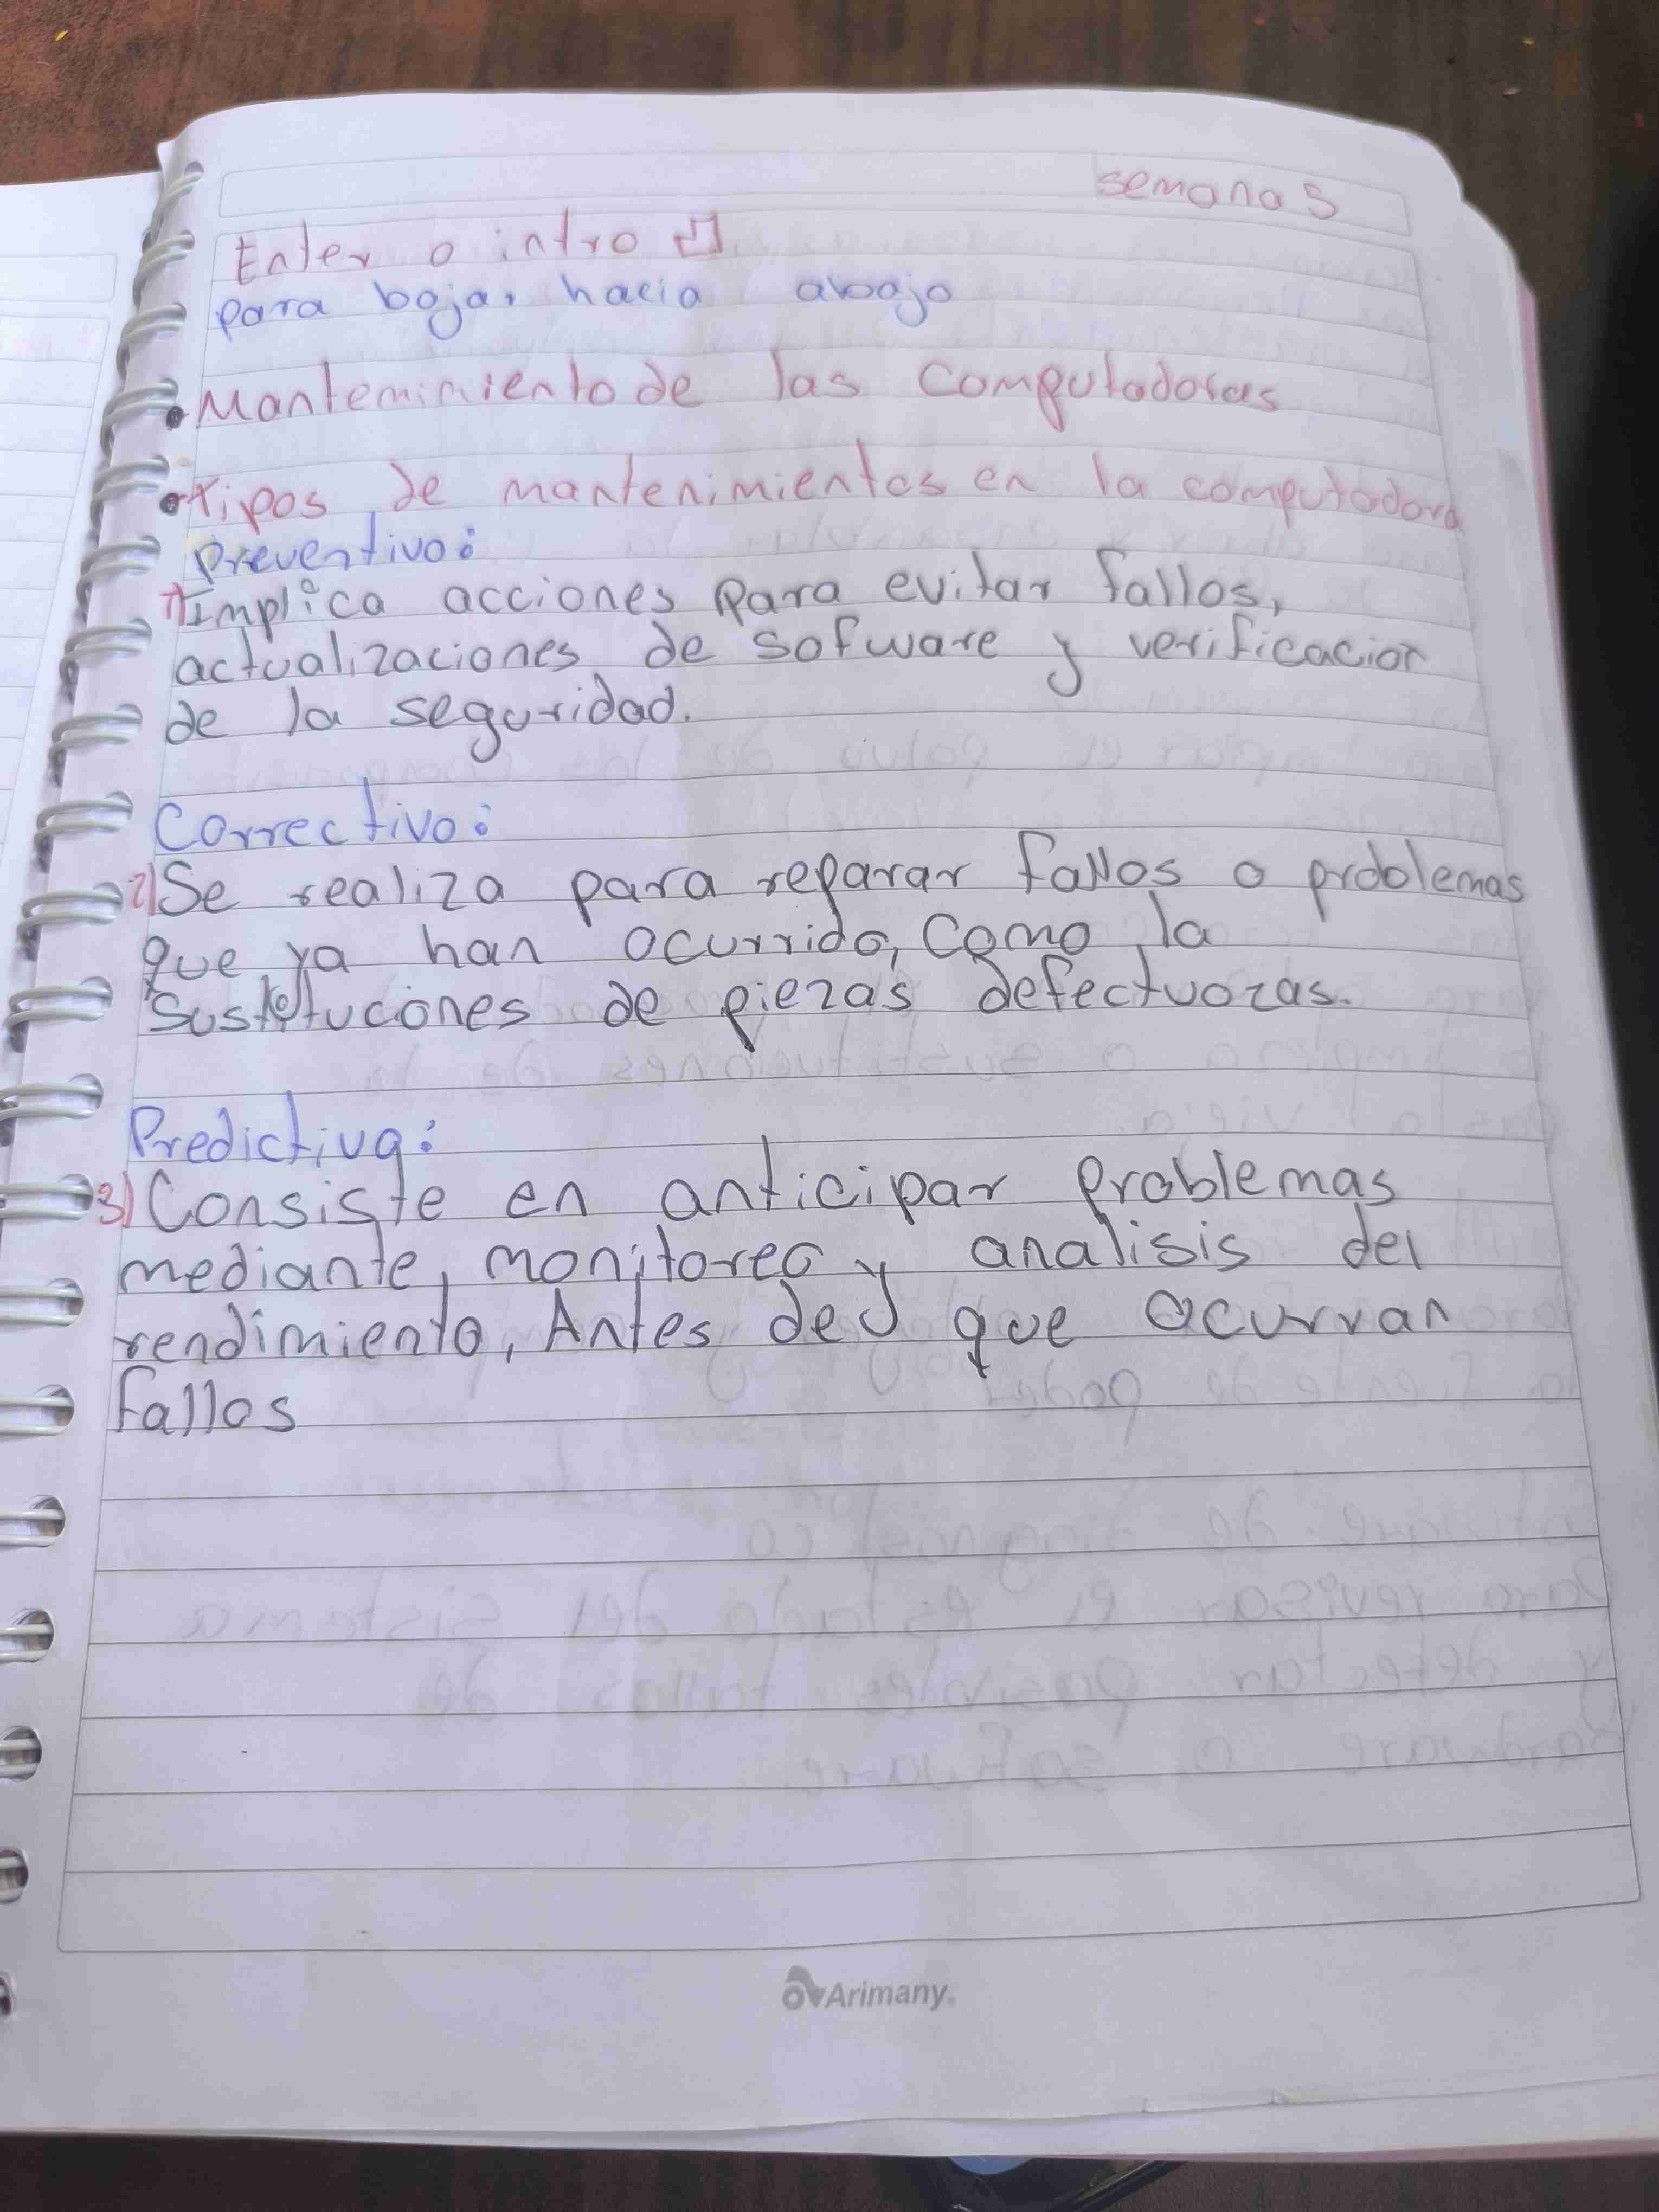 semana 5
Enter o intro
para bajar hacia abajo
Manteminiento de las computadoras
tipos de mantenimientos en la computadora
Preventivo:
1) Implica acciones para evitar fallos,
actualizaciones de sofware y verificacion
de la seguridad.
Correctivo:
2) Se realiza para reparar fallos o problemas
que ya han ocurrido, como la
de piezas defectuozas.
Predictiva:
3) Consiste en anticipar problemas
mediante, monitoreo y analisis del
rendimiento, Antes de que ocurran
fallos
Arimany